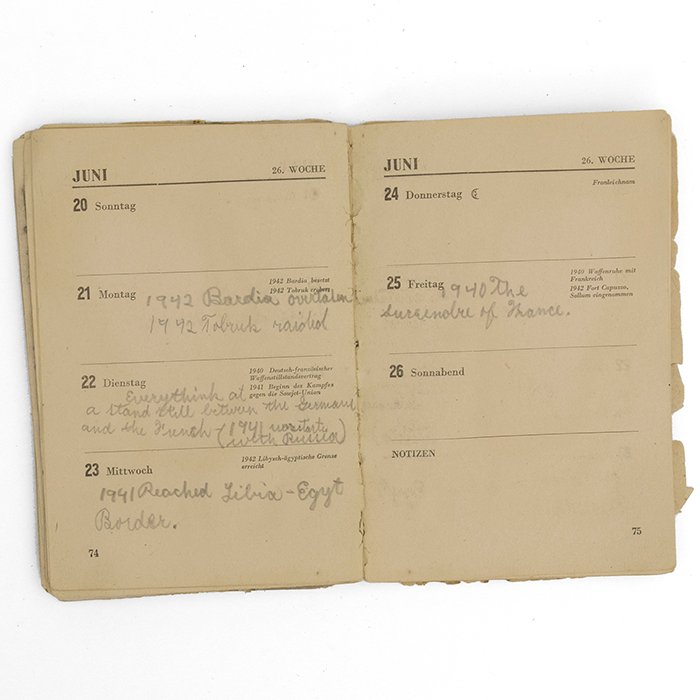 JUNI 26. WOCHE
20 Sonntag
1942 Bardia besetzt
1942 Tobruk erobert
21 Montag
1942 Bardia overtaken
1942 Tobruk raided
1940 Deutsch-französischer
Waffenstillstandsvertrag
1941 Beginn des Kampfes
gegen die Sowjet-Union
22 Dienstag
Everythink at
a stand still between the Germans
and the French - (1941 warstarts
(with Russia)
1942 Libysch-ägyptische Grenze
erreicht
23 Mittwoch
1941 Reached Libia - Egyt
Border.
74
JUNI 26. WOCHE
24 Donnerstag ☾
Fronleichnam
1940 Waffenruhe mit
Frankreich
1942 Fort Capuzzo,
Sollum eingenommen
25 Freitag
1940 The
surgendre of France.
26 Sonnabend
NOTIZEN
75